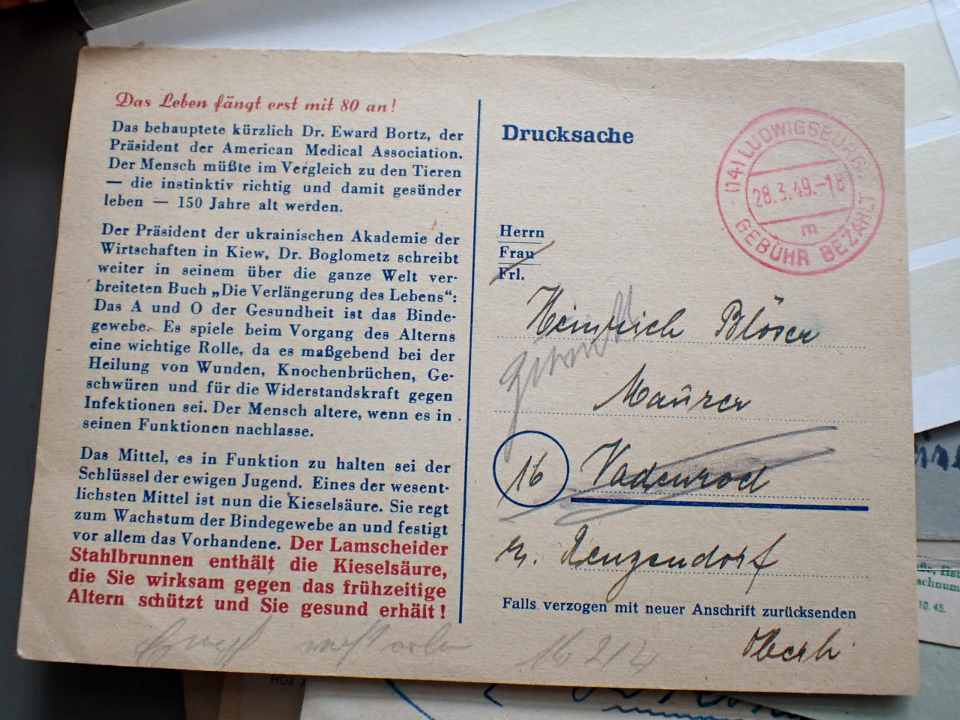 Das Leben fängt erst mit 80 an!
Das behauptete kürzlich Dr. Eward Bortz, der
Präsident der American Medical Association.
Der Mensch müßte im Vergleich zu den Tieren
— die instinktiv richtig und damit gesünder
leben — 150 Jahre alt werden.
Der Präsident der ukrainischen Akademie der
Wirtschaften in Kiew, Dr. Boglometz schreibt
weiter in seinem über die ganze Welt ver-
breiteten Buch „Die Verlängerung des Lebens“:
Das A und O der Gesundheit ist das Binde-
gewebe. Es spiele beim Vorgang des Alterns
eine wichtige Rolle, da es maßgebend bei der
Heilung von Wunden, Knochenbrüchen, Ge-
schwüren und für die Widerstandskraft gegen
Infektionen sei. Der Mensch altere, wenn es in
seinen Funktionen nachlasse.
Das Mittel, es in Funktion zu halten sei der
Schlüssel der ewigen Jugend. Eines der wesent-
lichsten Mittel ist nun die Kieselsäure. Sie regt
zum Wachstum der Bindegewebe an und festigt
vor allem das Vorhandene. Der Lamscheider
Stahlbrunnen enthält die Kieselsäure,
die Sie wirksam gegen das frühzeitige
Altern schützt und Sie gesund erhält!
Drucksache
(14) LUDWIGSBURG
28.3.49.-18
m
GEBÜHR BEZAHLT
Herrn
Frau
Frl.
Heinrich Blöser
Maurer
16 Vadenrod
Renzendorf
Falls verzogen mit neuer Anschrift zurücksenden
Oberh
16 214